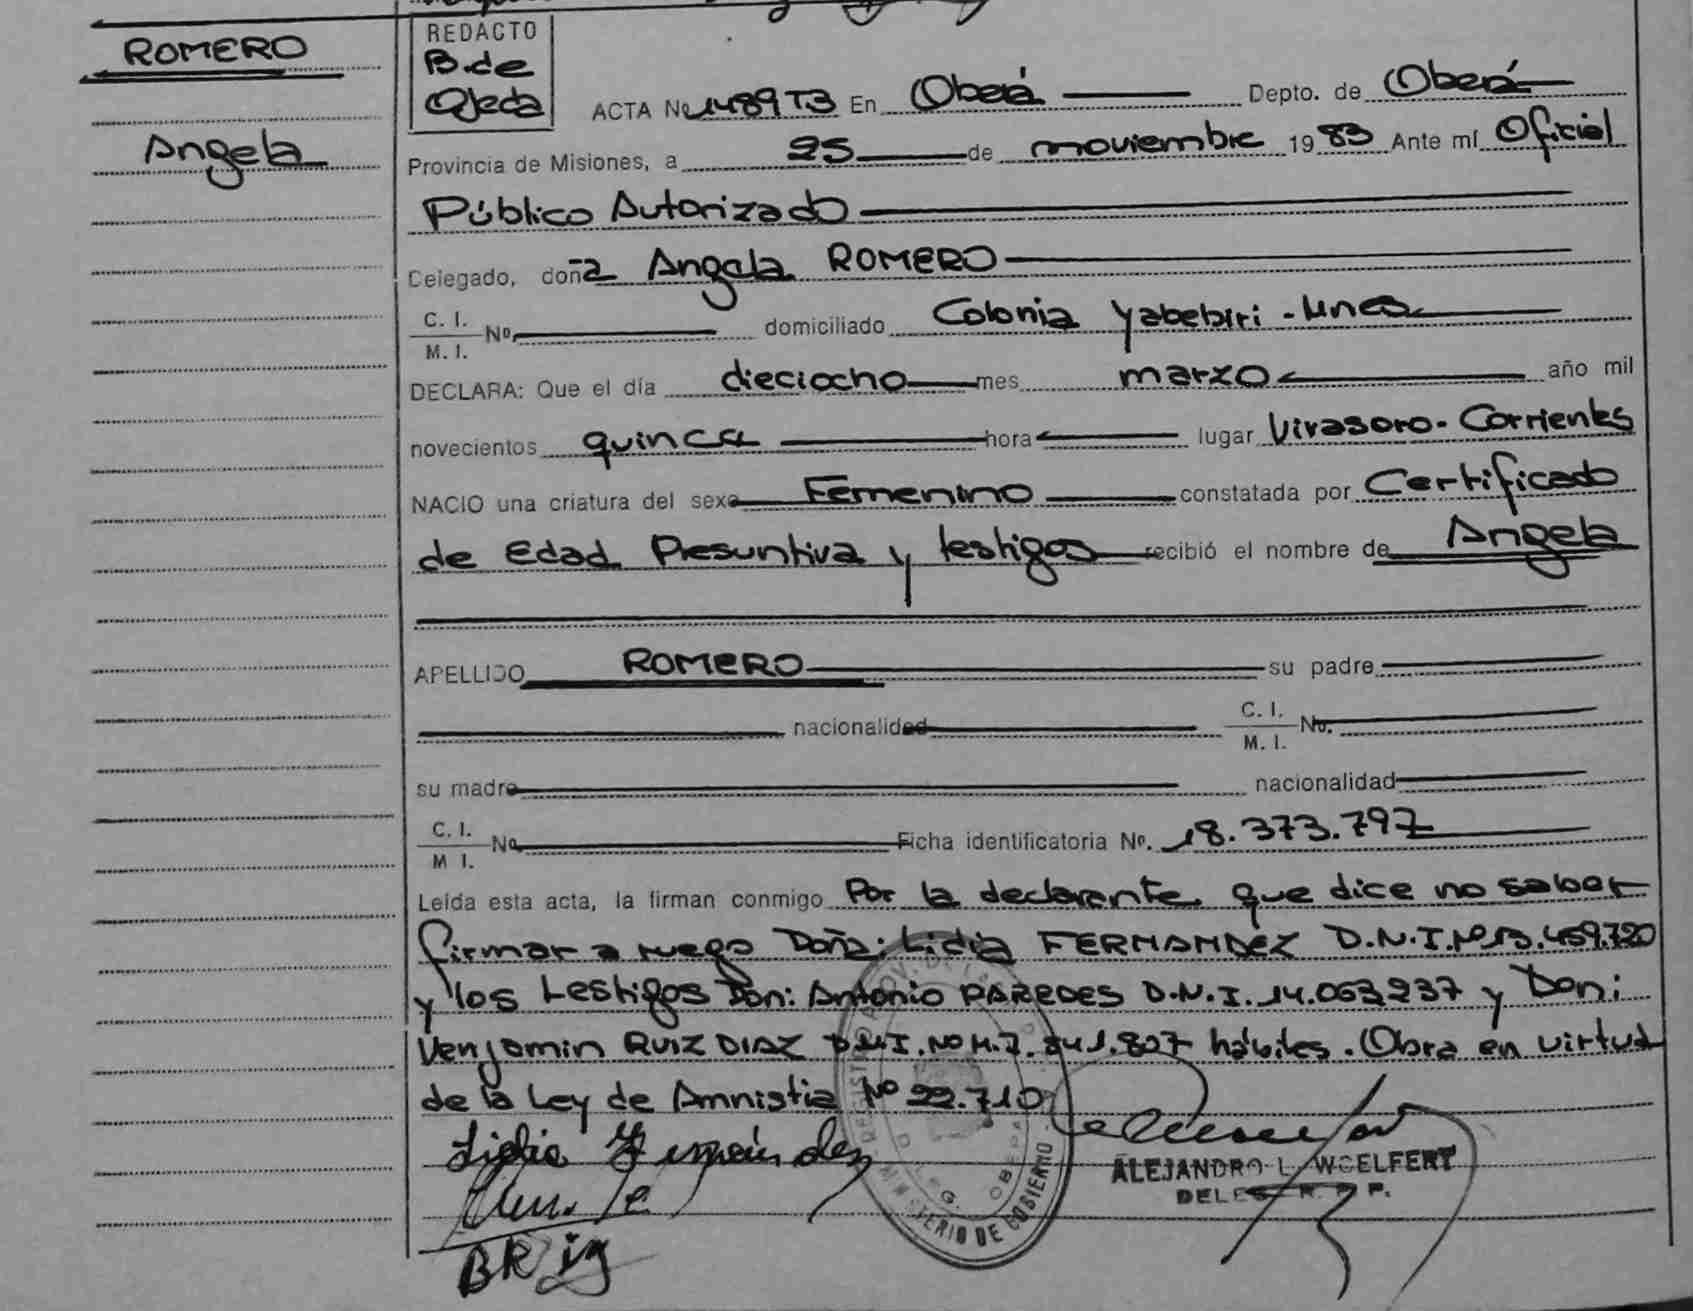 ROMERO
Angela
REDACTO
B. de
Ojeda
ACTA Nº 1489 T3 En Oberá Depto. de Oberá
Provincia de Misiones, a 25 de moviembre 1983 Ante mí Oficial
Público Autorizado
Celegado, doña Angela ROMERO
C. I.
M. I. Nº domiciliado Colonia Yabebiri -
DECLARA: Que el día dieciocho mes marzo año mil
novecientos quince hora lugar Virasoro - Corrientes
NACIO una criatura del sexo Femenino constatada por Certificado
de Edad Presuntiva y testigos recibió el nombre de Angela
APELLIDO ROMERO su padre
nacionalidad C. I.
M. I. No.
su madre nacionalidad
C. I.
M I. No Ficha identificatoria Nº. 18.373.797
Leída esta acta, la firman conmigo Por la declarante que dice no saber
firmar a ruego Doña: Lidia FERNANDEZ D.N.I. Nº 13.459.720
y los testigos Don: Antonio PAREDES D.N.I. 14.063.237 y Don:
Venjamin RUIZ DIAZ D.N.I. Nº M.7.841.827 hábiles. Obra en virtud
de la Ley de Amnistia Nº 22.710
Lidia Fernández
ALEJANDRO L. WOELFERT
DELEG. R. P. P.
MINISTERIO DE GOBIERNO